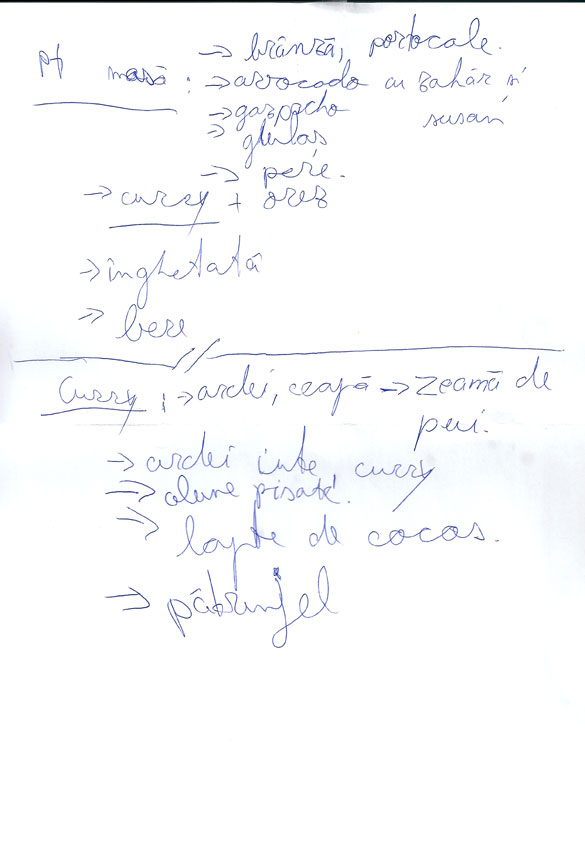 → brânză, portocale.
pt masă : → avrocado cu zahăr și
susan
→ gazpacho
→ ghulaș
→ pere.
→ curry + orez
→ înghetată
→ bere
Curry : → ardei, ceapă → zeamă de
pui.
→ ardei iute curry
→ alune pisate.
→ lapte de cocos.
→ pătrunjel